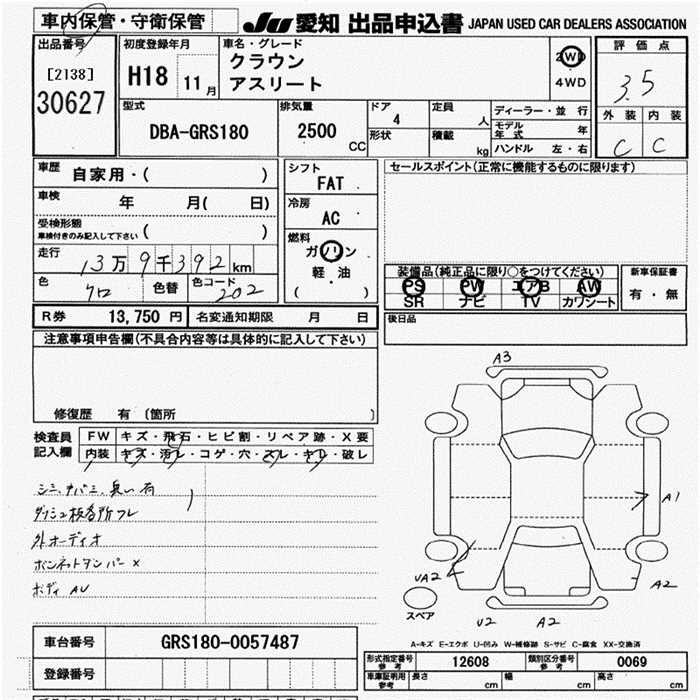 車内保管・守衛保管
JU 愛知 出品申込書 JAPAN USED CAR DEALERS ASSOCIATION
出品番号
[2138]
30627
初度登録年月
H18 11月
車名・グレード
クラウン
アスリート
2WD
4WD
評価点
3.5
外装 内装
C C
型式
DBA-GRS180
排気量
2500 CC
ドア
4
形状
定員
人
積載
kg
ディーラー・並行
モデル年式 年
ハンドル 左・右
車歴
自家用・( )
車検
年 月( 日)
受検形態
車検付きのみ記入して下さい ( )
走行
13万9千392km
色
クロ
色替
色コード
202
シフト
FAT
冷房
AC
燃料
ガソリン
軽・油
( )
セールスポイント(正常に機能するものに限ります)
装備品(純正品に限り○をつけてください)
PS PW エアB AW
SR ナビ TV カワシート
新車保証書
有・無
後日品
R券 13,750円 名変通知期限 月 日
注意事項申告欄(不具合内容等は具体的に記入して下さい)
修復歴 有 〔箇所 〕
検査員記入欄
FW キズ・飛石・ヒビ割・リペア跡・X要
内装 キズ・汚レ・コゲ・穴・スレ・キレ・破レ
シミ、ナバミ、臭い有
ダッシュ板各所フレ
外オーディオ
ボンネットダンパー×
ボディ AU
A3
A1
UA2
A2
U2
A2
スペア
A-キズ E-エクボ U-凹み W-補修跡 S-サビ C-腐食 XX-交換済
車台番号
GRS180-0057487
登録番号
形式指定番号参考 12608 類別区分番号参考 0069
車車証明用参考 長さ cm 幅 cm 高さ cm